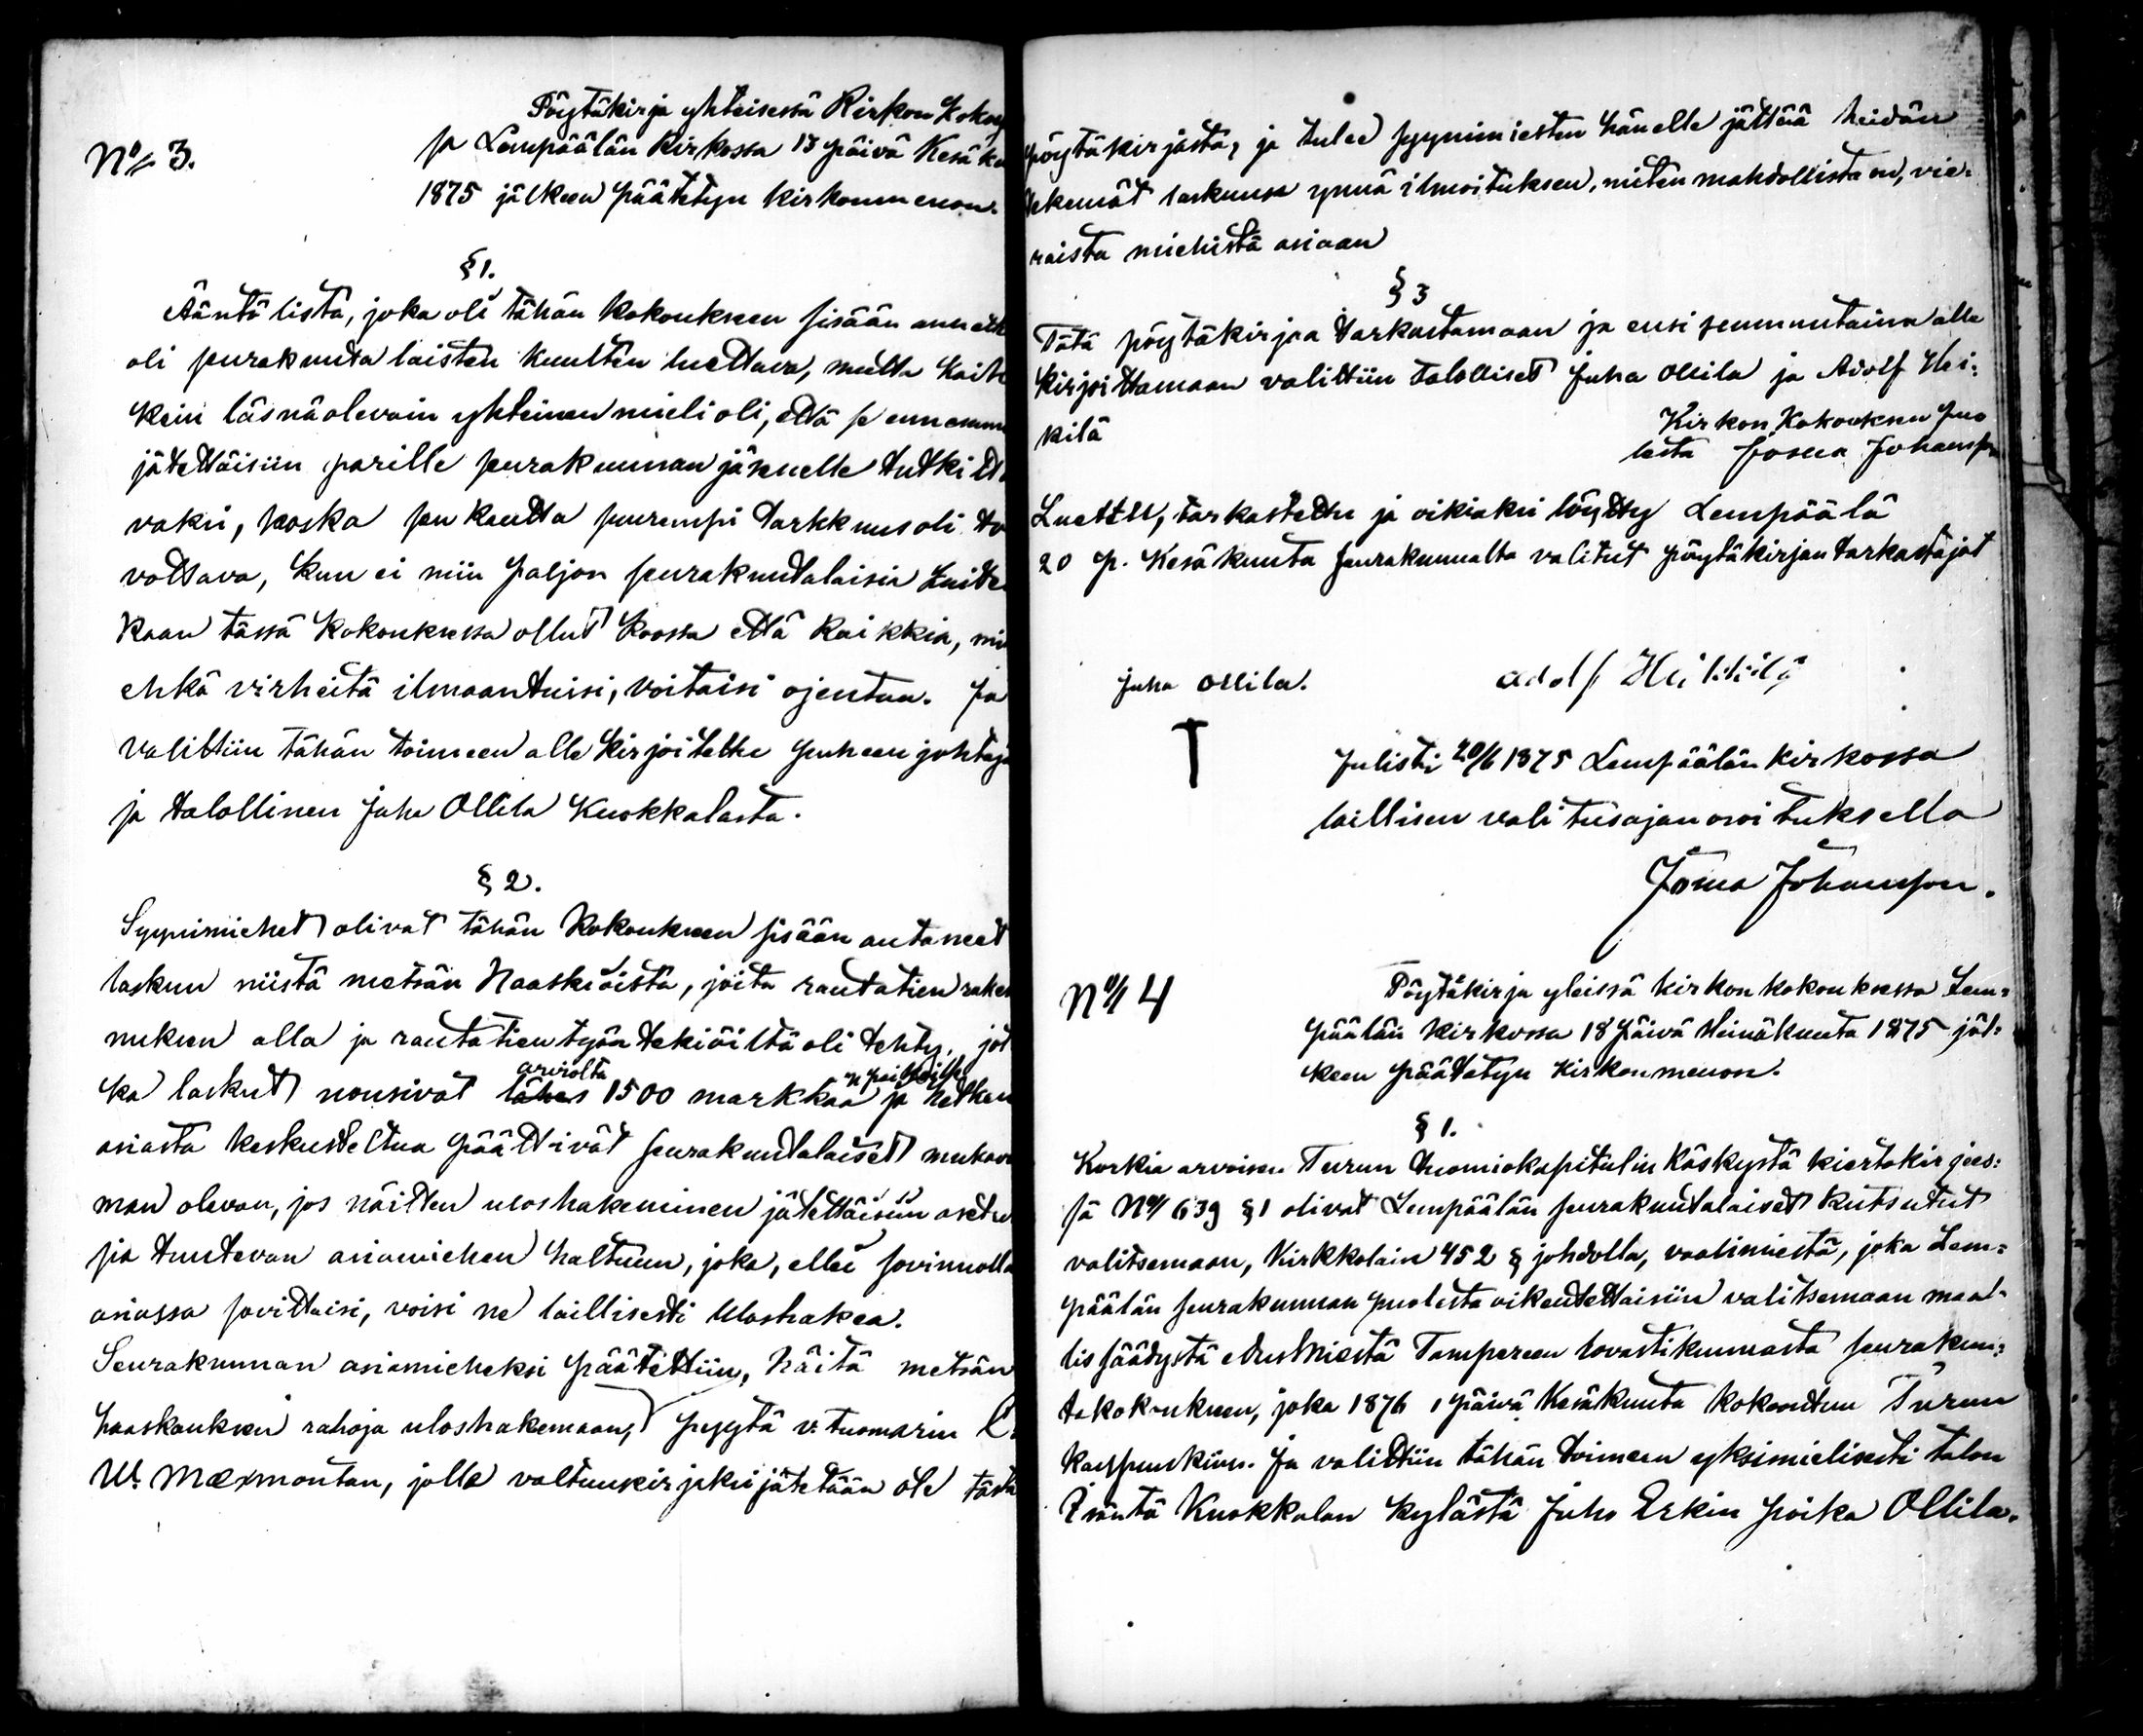 No 3.
Pöytäkirja yhteisessä Kirkon Kokouk
sa Lempäälän Kirkossa 13 päivä Kesäku
1875 jälkeen päätetyn kirkonmenon.
§ 1.
Ääntölista, joka oli tähän kokoukseen sisään annettu
oli seurakuntalaisten kuulten luettava, mutta kaik
kein läsnäolevain yhteinen mieli oli, että se ennemmi
jätettäisiin parille seurakunnan jäsenelle tutkitta
vaksi, koska sen kautta suurempi tarkkuus oli to
vottava, kun ei niin paljon seurakuntalaisia kuiten
kaan tässä kokouksessa ollut koossa että kaikkia, mi
ehkä virheitä ilmaantuisi, voitaisi ojentaa. Ja
valittiin tähän toimeen allekirjoitettu puheenjohtaja
ja talollinen Juha Ollila Kuokkalasta.
§ 2.
Syynimiehet olivat tähän kokoukseen sisään antaneet
laskun niistä metsän Haaskiöistä, joita rautatien raken
nuksen alla ja rautatien työn tekiöiltä oli tehty, jot
ka laskut nousivat arviolta 1500 markkaa ja hetken
asiasta keskusteltua päättivät seurakuntalaiset mukava
man olevan, jos näitten uloshakeminen jätettäisiin asetu
sia tuntevan asiamiehen haltuun, joka, ellei sovinnolla
asiassa sovittaisi, voisi ne laillisesti uloshakea.
Seurakunnan asiamieheksi päätettiin, näitä metsän
haaskauksen rahoja uloshakemaan, pyytä v. tuomarin C.
W. Mæxmontan, jolle valtuuskirjaksi jätetään ote tästä
pöytäkirjasta, ja tulee syynimiesten hänelle jättää heidän
tekemät laskunsa ynnä ilmoituksen, miten mahdollista on, vie-
raista miehistä asiaan
§ 3
Tätä pöytäkirjaa tarkastamaan ja ensi sunnuntaina alle
kirjoittamaan valittiin talolliset Juha Ollila ja Adolf Hei-
kilä
Kirkon Kokouksen puo
lesta Josua Johansson
Luettu, tarkastettu ja oikiaksi löydty Lempäälä
20 p. Kesäkuuta Seurakunnalta valitut pöytäkirjan tarkastajat
Juha Ollila. Adolf Heikkilä
Julisti 20/6 1875 Lempäälän kirkossa
laillisen valitusajan osoituksella
Josua Johansson.
No 4
Pöytäkirja yleissä kirkon kokouksessa Lem-
päälän kirkossa 18 päivä Heinäkuuta 1875 jäl-
keen päätetyn kirkonmenon.
§ 1.
Korkia arvoisen Turun tuomiokapitulin käskystä kiertokirjees-
sä No 639 § 1 olivat Lempäälän seurakuntalaiset kutsutut
valitsemaan, Kirkkolain 452 § johdolla, vaalimiestä, joka Lem-
päälän seurakunnan puolesta oikeutettaisiin valitsemaan maal-
lis säädystä edusmiestä Tampereen rovastikunnasta seurakun-
takokoukseen, joka 1876 1 päivä Kesäkuuta kokoontuu Turun
kaupunkiin. Ja valittiin tähän toimeen yksimielisesti talon
Isäntä Kuokkalan kylästä Juho Erkin poika Ollila.